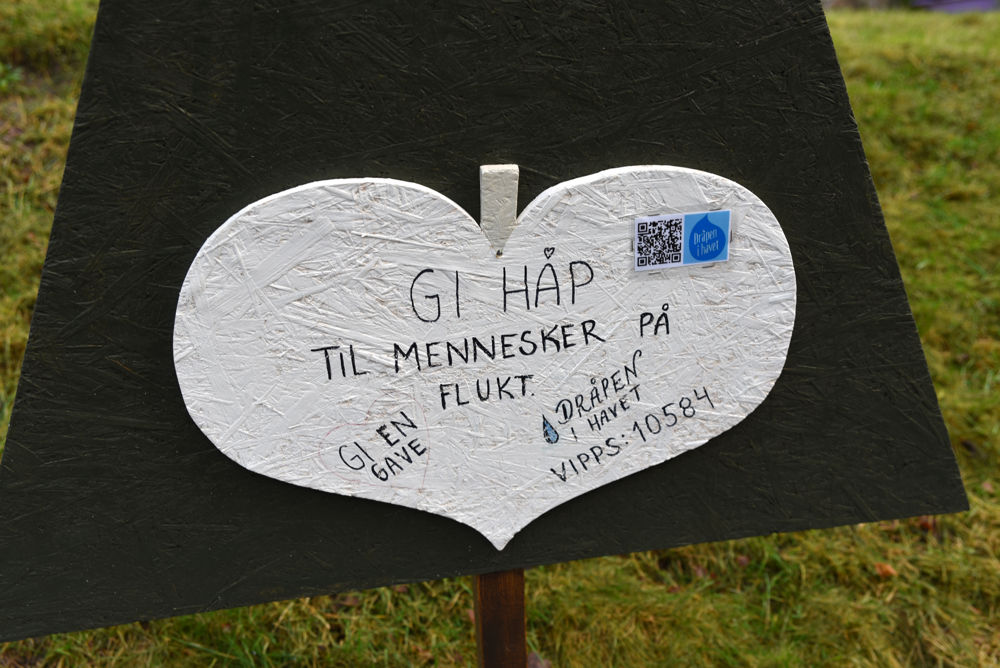 Dråpen
i havet
GI HÅP
TIL MENNESKER PÅ
FLUKT.
GI EN
GAVE
DRÅPEN
I HAVET
VIPPS: 10584